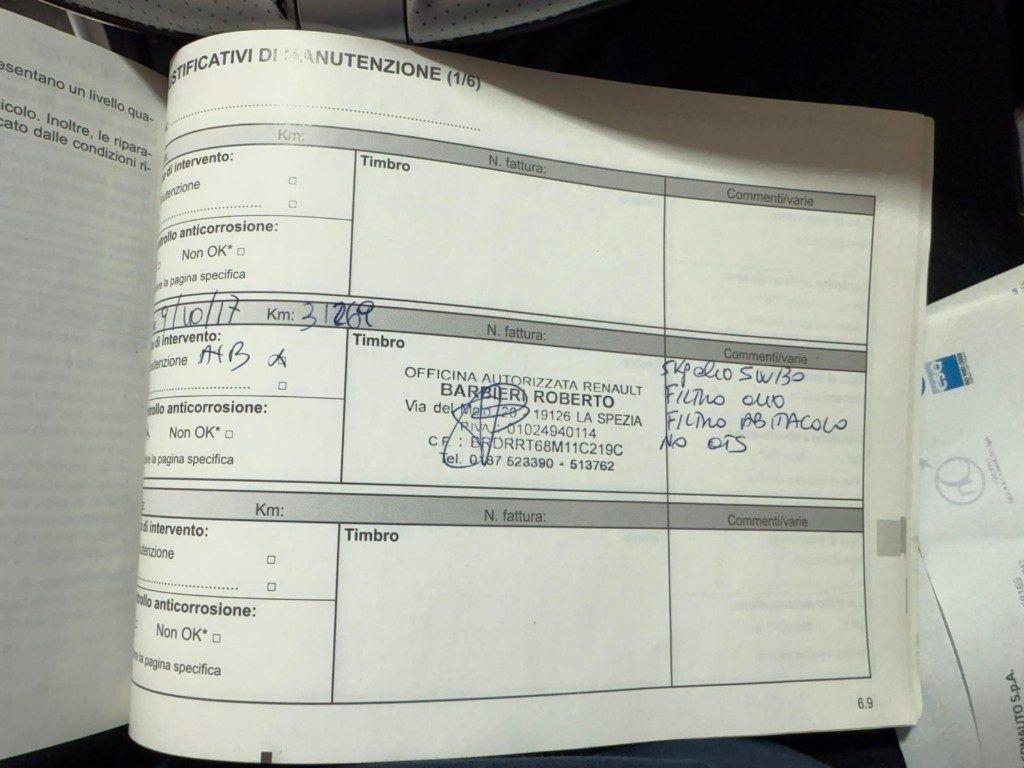 esentano un livello qua-
icolo. Inoltre, le ripara-
cato dalle condizioni ri-
STIFICATIVI DI MANUTENZIONE (1/6)
Km:
N. fattura:
Commenti/varie
di intervento:
Timbro
utenzione
ntrollo anticorrosione:
Non OK*
ere la pagina specifica
9/10/17 Km:
N. fattura:
Commenti/varie
di intervento:
Timbro
tenzione A+B
ntrollo anticorrosione:
Non OK*
ere la pagina specifica
OFFICINA AUTORIZZATA RENAULT
BARBIERI ROBERTO
Via del 20 - 19126 LA SPEZIA
P.IVA: 01024940114
C.F.: BRDRRT68M11C219C
Tel. 0187 523390 - 513762
5W30
FILTRO OLIO
FILTRO ABITACOLO
NO OTS
Km:
N. fattura:
Commenti/varie
di intervento:
Timbro
tenzione
rollo anticorrosione:
Non OK*
re la pagina specifica
6.9
csq
OMAUTO S.p.A.